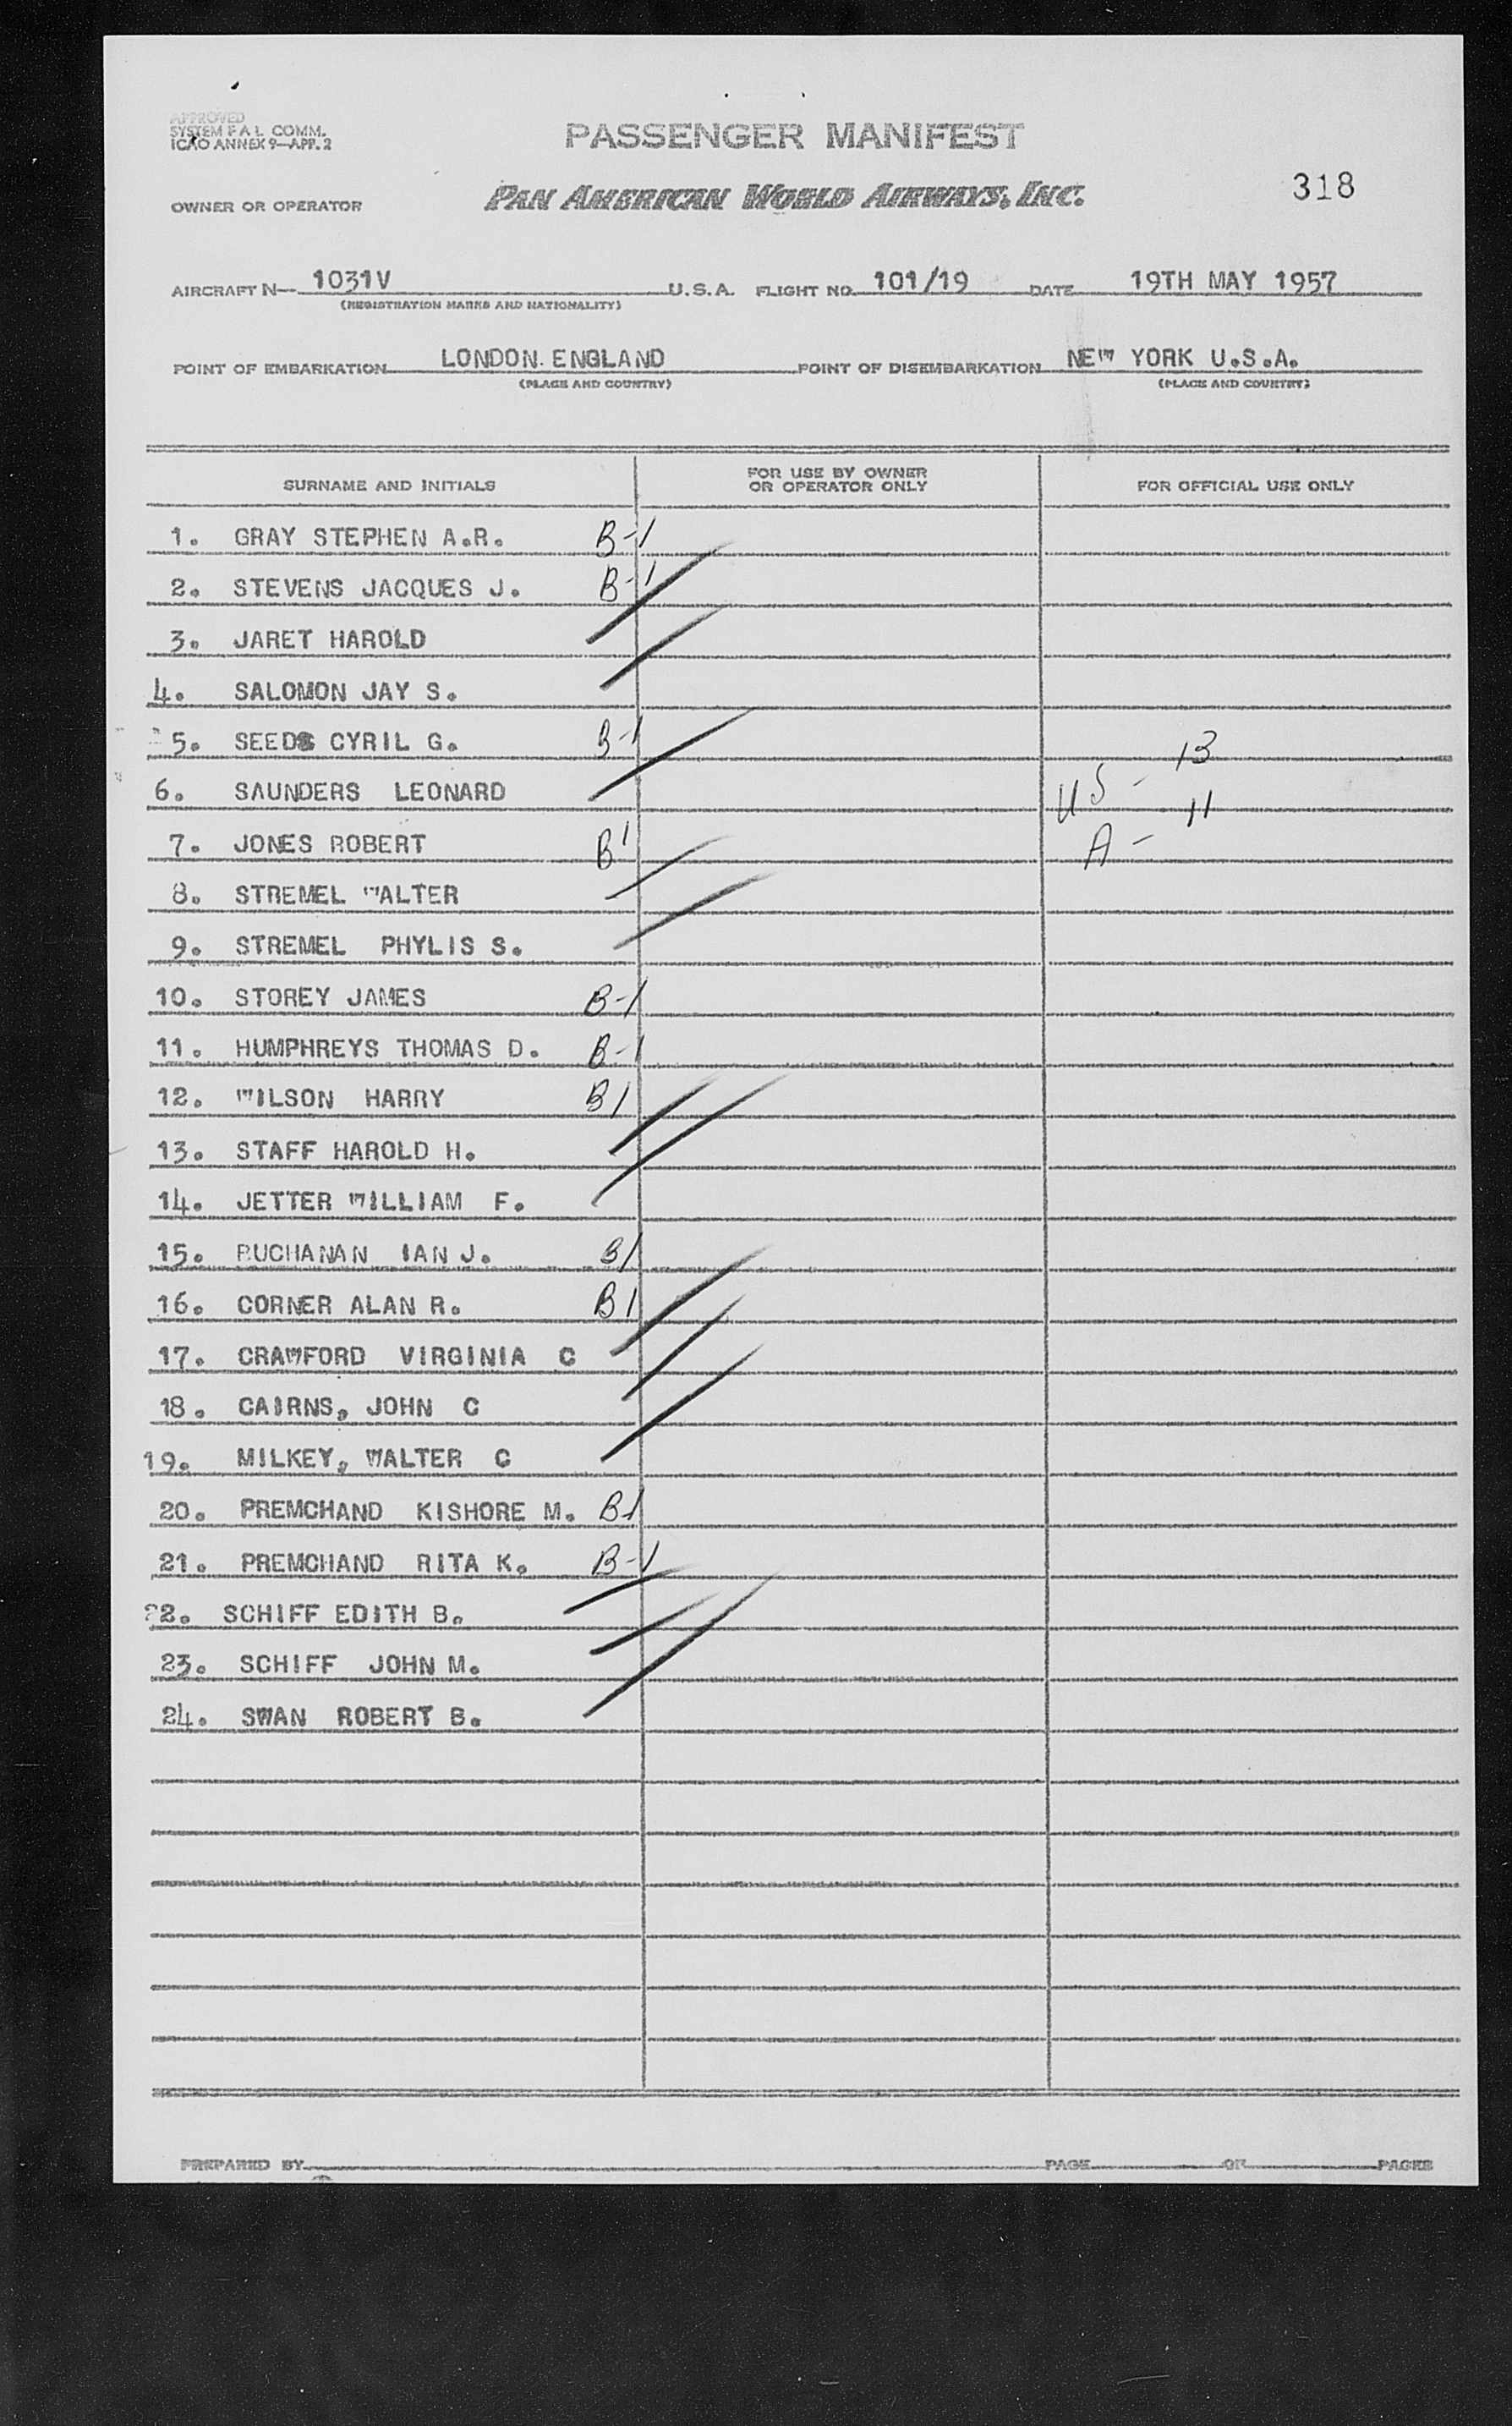 APPROVED
SYSTEM F A L COMM.
ICAO ANNEX 9—APP. 2
PASSENGER MANIFEST
OWNER OR OPERATOR PAN AMERICAN WORLD AIRWAYS, INC. 318
AIRCRAFT N— 1031V U.S.A. FLIGHT NO. 101/19 DATE 19TH MAY 1957
(REGISTRATION MARKS AND NATIONALITY)
POINT OF EMBARKATION LONDON. ENGLAND POINT OF DISEMBARKATION NEW YORK U.S.A.
(PLACE AND COUNTRY) (PLACE AND COUNTRY)
SURNAME AND INITIALS FOR USE BY OWNER OR OPERATOR ONLY FOR OFFICIAL USE ONLY
1. GRAY STEPHEN A.R. B-1
2. STEVENS JACQUES J. B-1
3. JARET HAROLD
4. SALOMON JAY S.
5. SEEDS CYRIL G. B-1
6. SAUNDERS LEONARD US - 13
7. JONES ROBERT B1 A - 11
8. STREMEL WALTER
9. STREMEL PHYLIS S.
10. STOREY JAMES B-1
11. HUMPHREYS THOMAS D. B-1
12. WILSON HARRY B1
13. STAFF HAROLD H.
14. JETTER WILLIAM F.
15. BUCHANAN IAN J. B1
16. CORNER ALAN R. B1
17. CRAWFORD VIRGINIA C
18. CAIRNS, JOHN C
19. MILKEY, WALTER C
20. PREMCHAND KISHORE M. B1
21. PREMCHAND RITA K. B-1
22. SCHIFF EDITH B.
23. SCHIFF JOHN M.
24. SWAN ROBERT B.
PREPARED BY PAGE OF PAGES